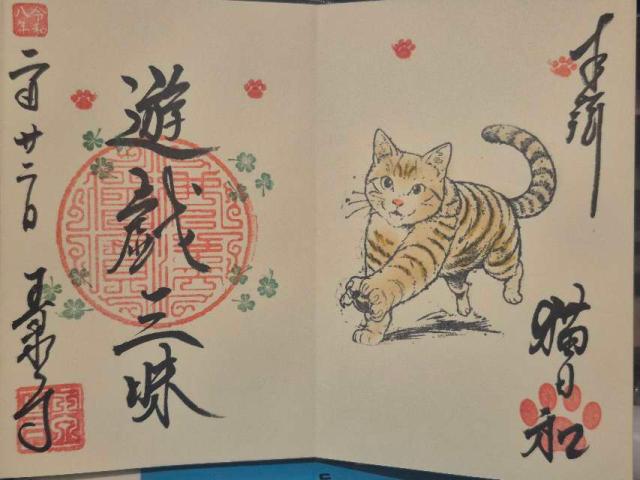 奉拝
猫日和
遊戯三昧
令和八年
二月廿二日